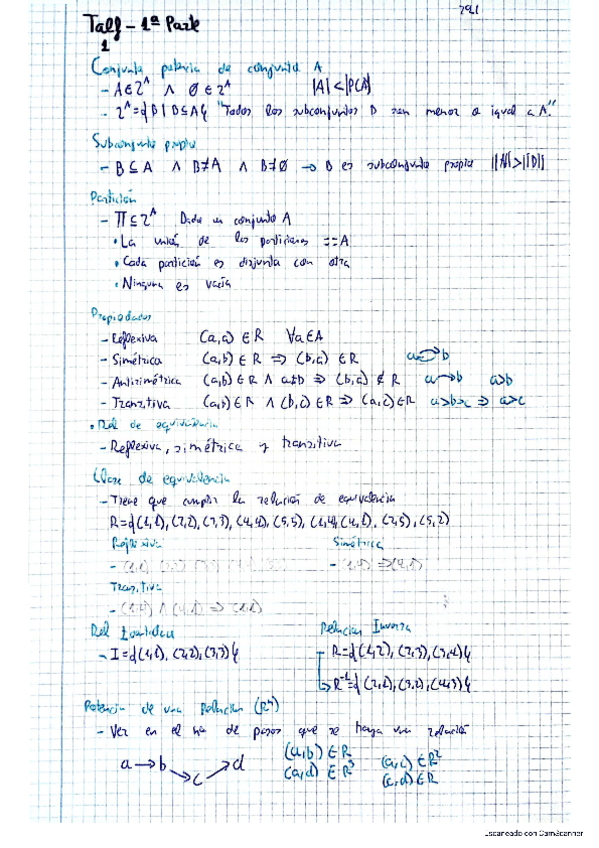 Talf - 1ª Parte
1
Conjunto potencia de conjunto A
- A∈2^A ∧ ∅∈2^A |A|<|P(A)|
- 2^A={B | B⊆A} "Todos los subconjuntos B sean menor o igual a A."
Subconjunto propio
- B⊆A ∧ B≠A ∧ B≠∅ → B es subconjunto propio ||A||>||B||
Partición
- Π⊆2^A Dado un conjunto A
• La unión de las particiones ==A
• Cada partición es disjunta con otra
• Ninguna es vacía
Propiedades
- Reflexiva (a,a)∈R ∀a∈A
- Simétrica (a,b)∈R ⇒ (b,a)∈R a b
- Antisimétrica (a,b)∈R ∧ a≠b ⇒ (b,a)∉R a→b a>b
- Tranzitiva (a,b)∈R ∧ (b,c)∈R ⇒ (a,c)∈R a>b>c ⇒ a>c
• Rel de equivalencia
- Reflexiva, simétrica y tranzitiva
Clase de equivalencia
- Tiene que cumplir la relación de equivalencia
R={(1,1),(2,2),(3,3),(4,4),(5,5),(1,4),(4,1),(2,5),(5,2)
Reflexiva Simétrica
- (1,1) - (1,4)⇒(4,1)
Tranzitiva
- (1,4) ∧ (4,1) ⇒ (1,1)
Rel Identidad Relación Inversa
- I={(1,1),(2,2),(3,3)} - R={(1,2),(2,3),(3,4)}
↳ R^-1={(2,1),(3,2),(4,3)}
Potencia de una Relación (R^n)
- Ver en el nº de pasos que se haya una relación
a→b c d (a,b)∈R (a,c)∈R²
(a,d)∈R³ (c,d)∈R
Escaneado con CamScanner